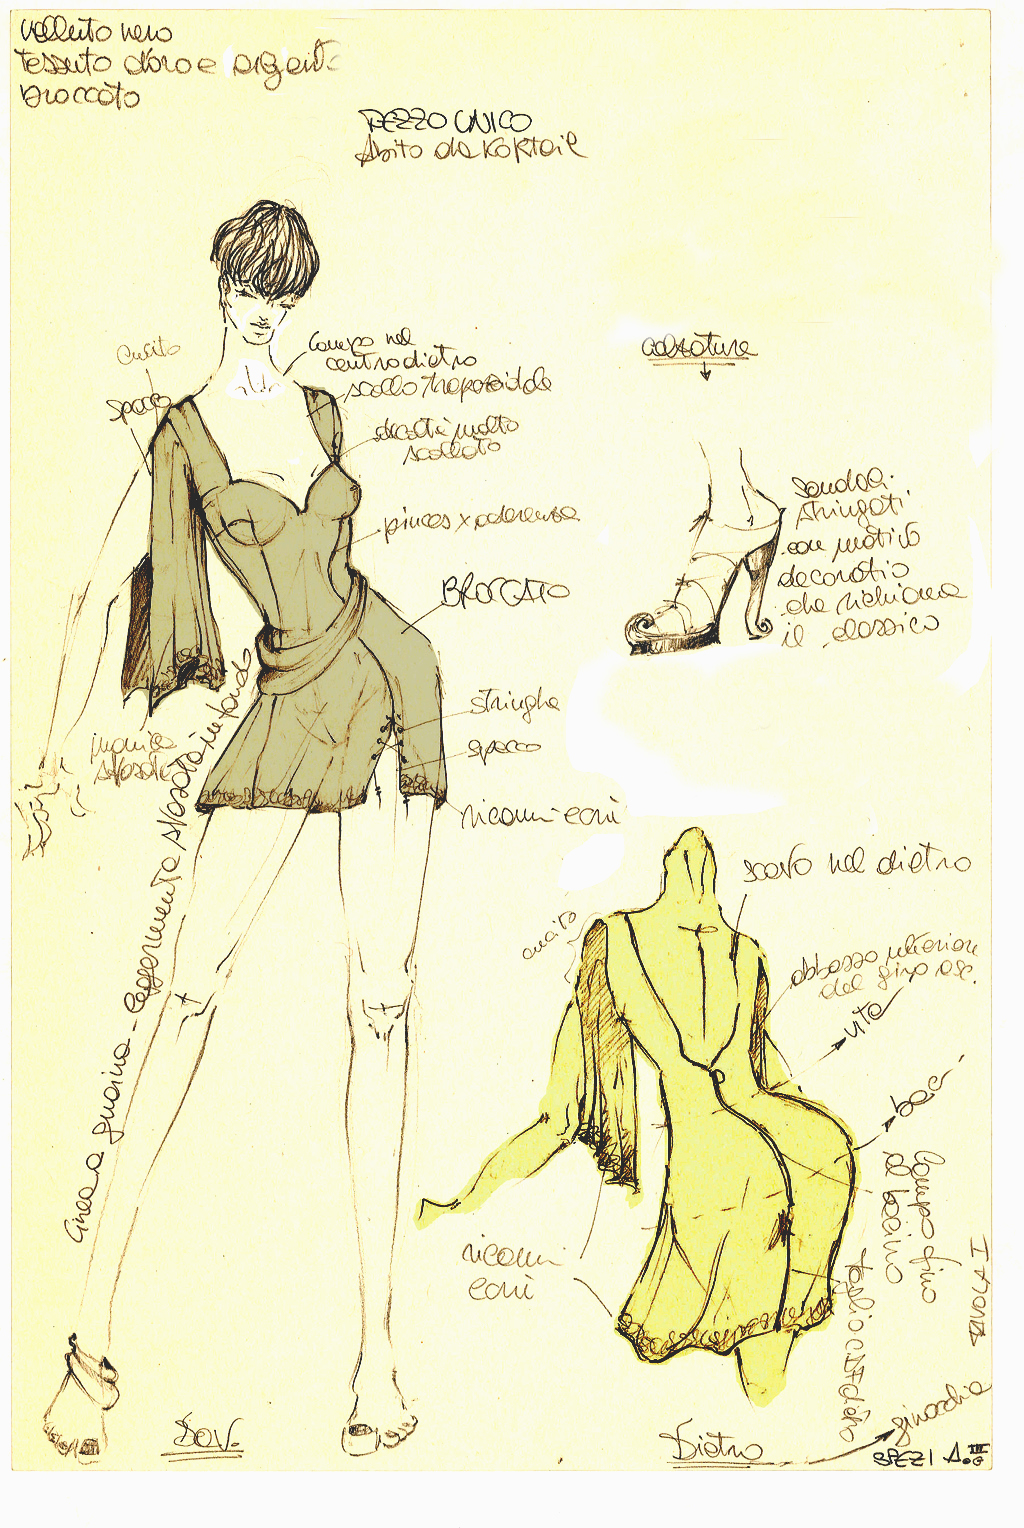 velluto nero
tessuto d'oro e argento
broccato
PEZZO UNICO
Abito da Koktail
cucito
spacco
lampo nel
centro dietro
scollo trapezoidale
decoltè molto
scollato
pinces x aderenza
BROCCATO
stringhe
spacco
ricami eoni
manica
svasata
linea a guaina - leggermente svasata in fondo
calzature
sandali
stringati
con motivo
decorativo
che richiama
il classico
scavo nel dietro
cucito
abbasso ulteriore
del giro asc.
vita
baci
lampo fino
al bacino
taglio c.d. dietro
ricami
eoni
TAVOLA I
ginocchia
Dav.
Dietro
SPEZI A. III G